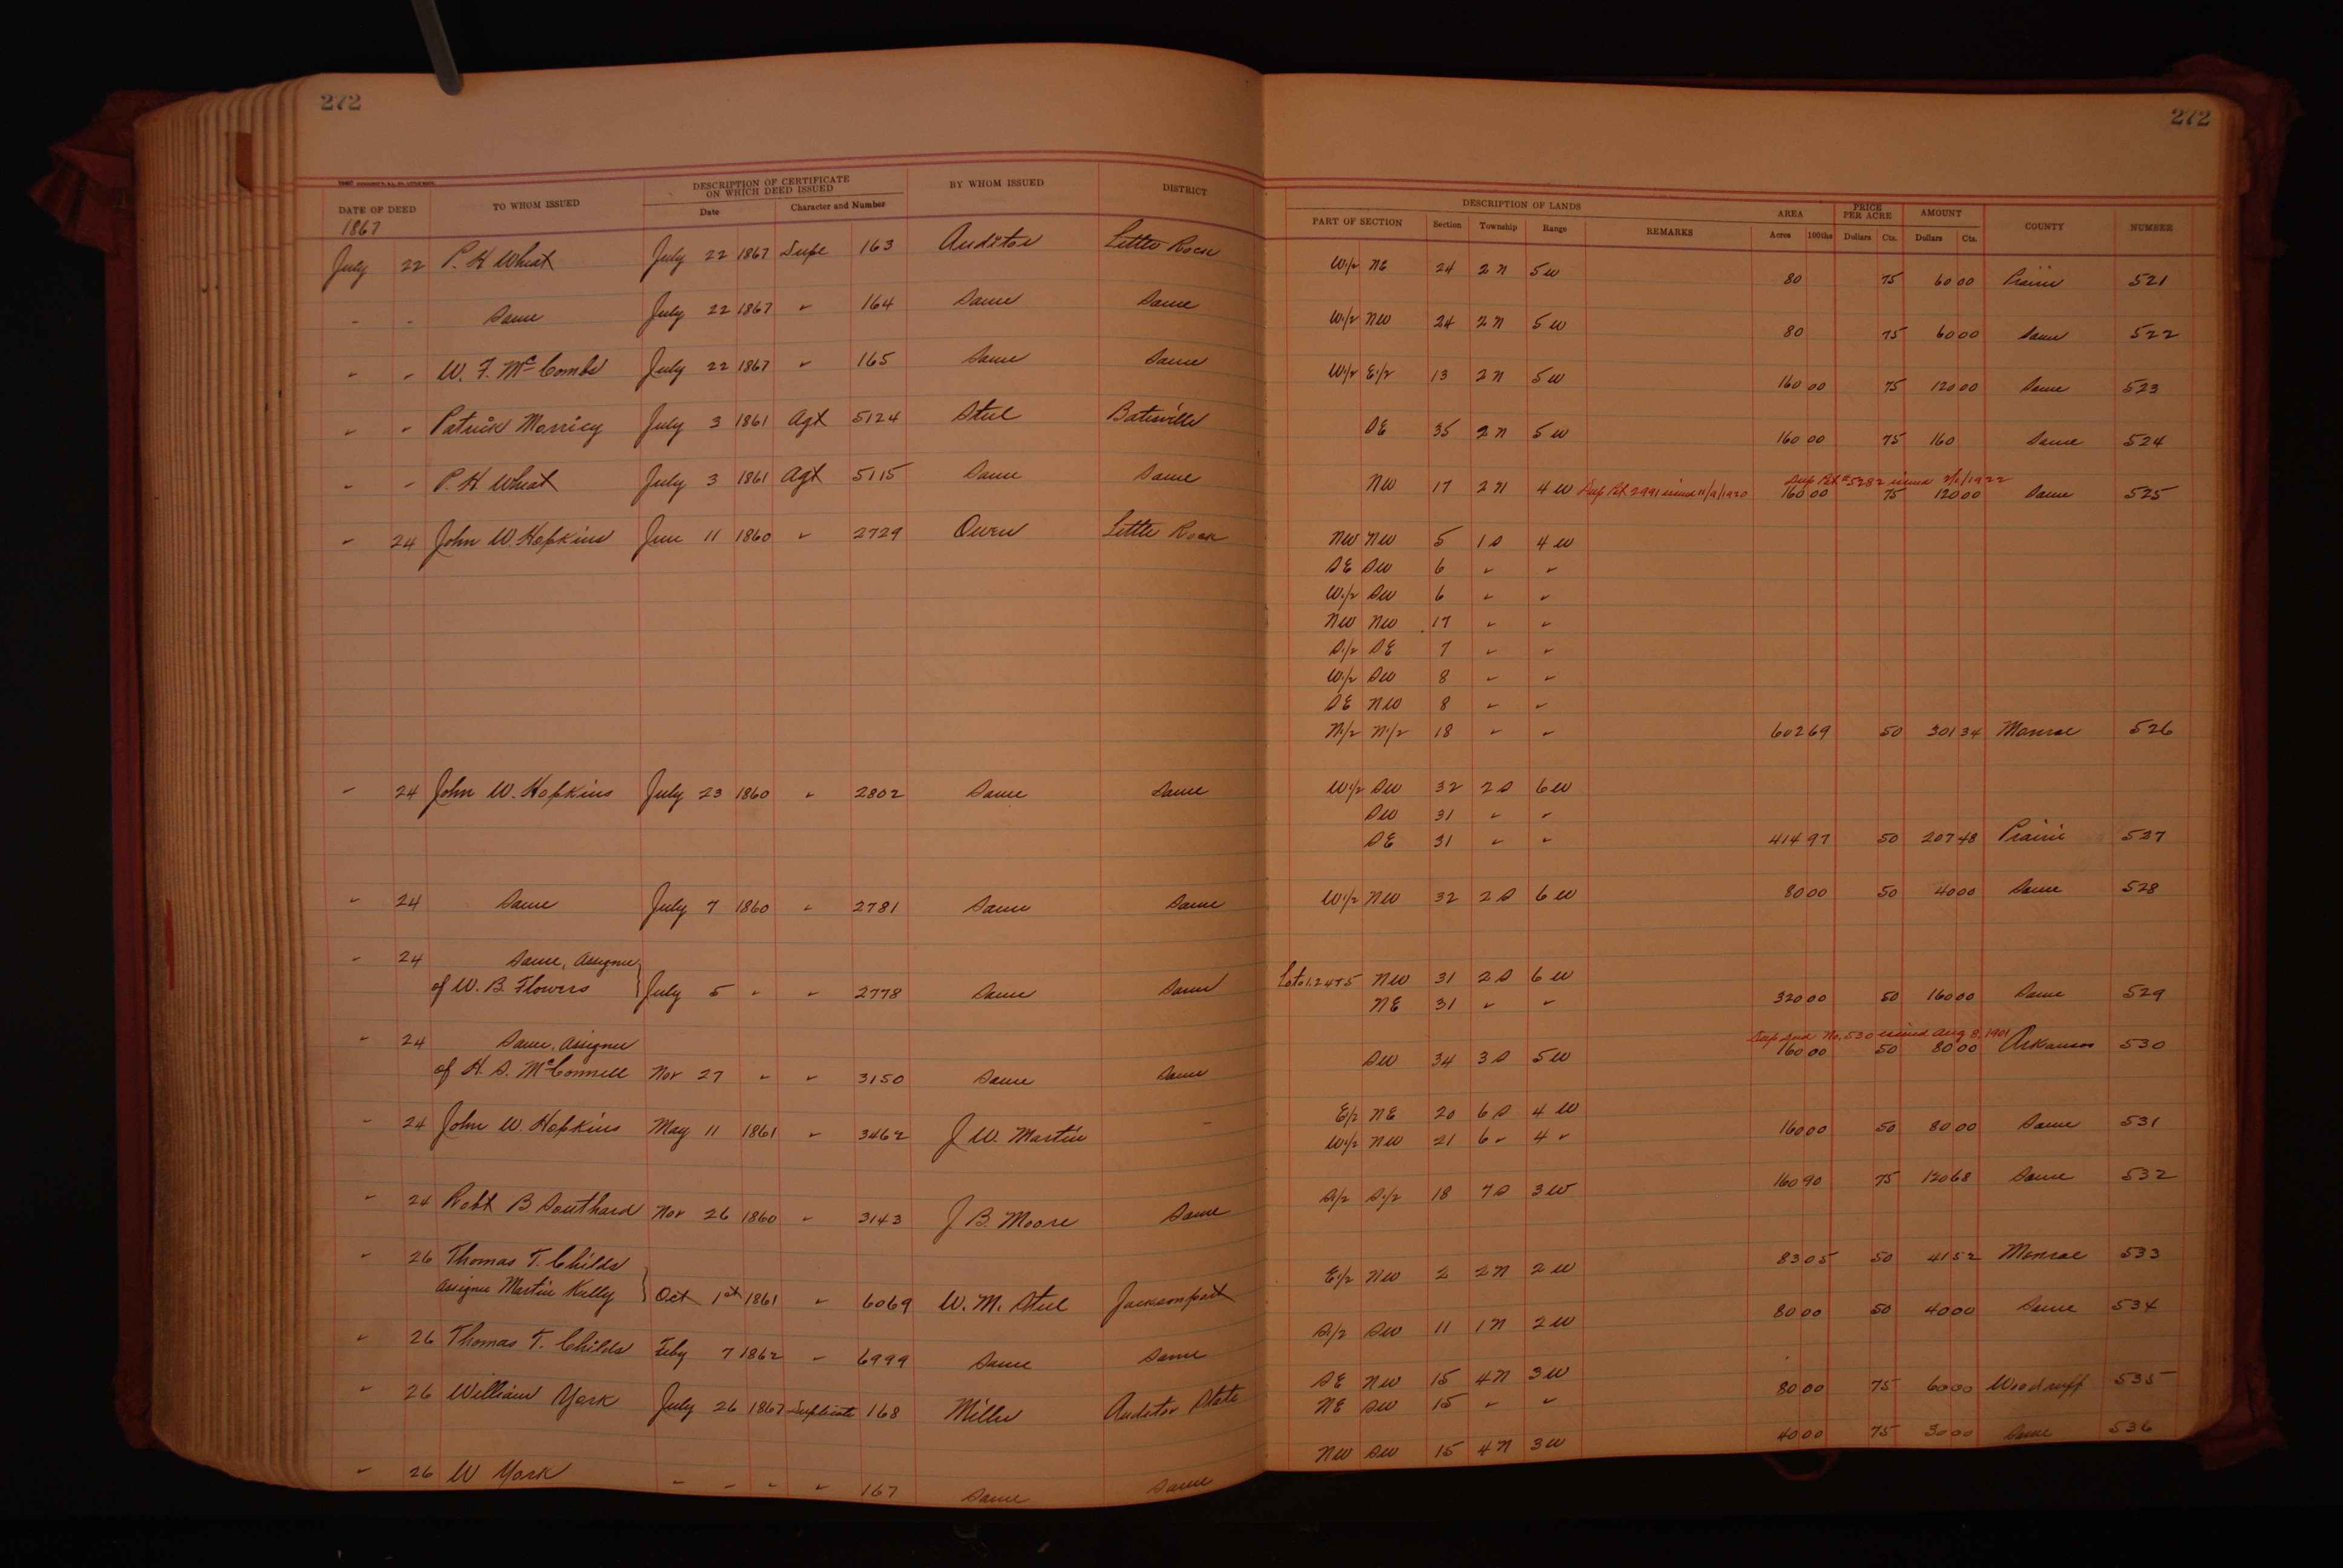 272
272
DATE OF DEED TO WHOM ISSUED DESCRIPTION OF CERTIFICATE ON WHICH DEED ISSUED BY WHOM ISSUED DISTRICT
Date Character and Number
DESCRIPTION OF LANDS AREA PRICE PER ACRE AMOUNT COUNTY NUMBER
PART OF SECTION Section Township Range REMARKS Acres 100ths Dollars Cts. Dollars Cts.
1867
July 22 P. H Wheat July 22 1867 Dupl 163 Auditor Little Rock W1/2 NE 24 2 N 5 W 80 75 60 00 Prairie 521
" " Same July 22 1867 " 164 Same Same W1/2 NW 24 2 N 5 W 80 75 60 00 Same 522
" " W. F. McCombs July 22 1867 " 165 Same Same W1/2 E1/2 13 2 N 5 W 160 00 75 120 00 Same 523
" " Patrick Morricy July 3 1861 Agt 5124 Steel Batesville SE 35 2 N 5 W 160 00 75 160 Same 524
Dup Pat #5282 issued 2/1/1922
" " P. H. Wheat July 3 1861 Agt 5115 Same Same NW 17 2 N 4 W Dup Pat 2991 issued 11/9/1920 160 00 75 120 00 Same 525
" 24 John W. Hopkins June 11 1860 " 2729 Owen Little Rock NW NW 5 1 S 4 W
SE SW 6 " "
W1/2 SW 6 " "
NW NW 17 " "
S1/2 SE 7 " "
W1/2 SW 8 " "
SE NW 8 " "
N1/2 N1/2 18 " " 602 69 50 301 34 Monroe 526
" 24 John W. Hopkins July 23 1860 " 2802 Same Same W1/2 SW 32 2 S 6 W
SW 31 " "
SE 31 " " 414 97 50 207 48 Prairie 527
" 24 Same July 7 1860 " 2781 Same Same W1/2 NW 32 2 S 6 W 80 00 50 40 00 Same 528
" 24 Same, Assignee
of W. B. Flowers July 5 " " 2778 Same Same Lots 1.2 4 & 5 NW 31 2 S 6 W
NE 31 " " 320 00 50 160 00 Same 529
" 24 Same, Assignee
Dup Deed No. 530 issued Aug 8, 1901
of H. S. McConnell Nov 27 " " 3150 Same Same SW 34 3 S 5 W 160 00 50 80 00 Arkansas 530
" 24 John W. Hopkins May 11 1861 " 3462 J W. Martin " E1/2 NE 20 6 S 4 W
W1/2 NW 21 6 " 4 " 160 00 50 80 00 Same 531
" 24 Robt B Southard Nov 26 1860 " 3143 J B. Moore Same S1/2 S1/2 18 7 S 3 W 160 90 75 120 68 Same 532
" 26 Thomas T. Childs
Assignee Martin Kelly Oct 1st 1861 " 6069 W. M. Steel Jacksonport E1/2 NW 2 2 N 2 W 83 05 50 41 52 Monroe 533
" 26 Thomas T. Childs Feby 7 1862 " 6999 Same Same S1/2 SW 11 1 N 2 W 80 00 50 40 00 Same 534
" 26 William York July 26 1867 Duplicate 168 Miller Auditor State SE NW 15 4 N 3 W
NE SW 15 " " 80 00 75 60 00 Woodruff 535
" 26 W York " " " " 167 Same Same NW SW 15 4 N 3 W 40 00 75 30 00 Same 536